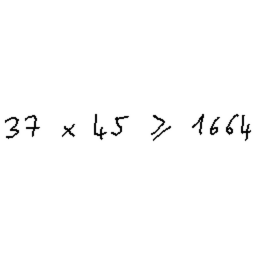 37 × 45 ⩾ 1664